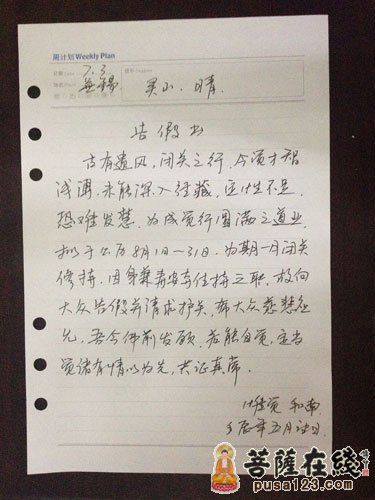 周计划 Weekly Plan
7.3
灵山、晴
告假书
古有遗风，闭关之行，今 才智
浅漏，未能深入经藏，定性不足，
恐难发慧，为成觉行圆满之道业，
拟于公历8月1日—31日，为期一月闭关
修持，因身兼寿安寺住持之职，故向
大众告假并请求护关， 大众慈悲应
允，吾今佛前发愿，若能自觉，定当
觉诸有情以为先，共证真常。
觉 和南
壬辰年五月
菩薩在线
www.pusa123.com